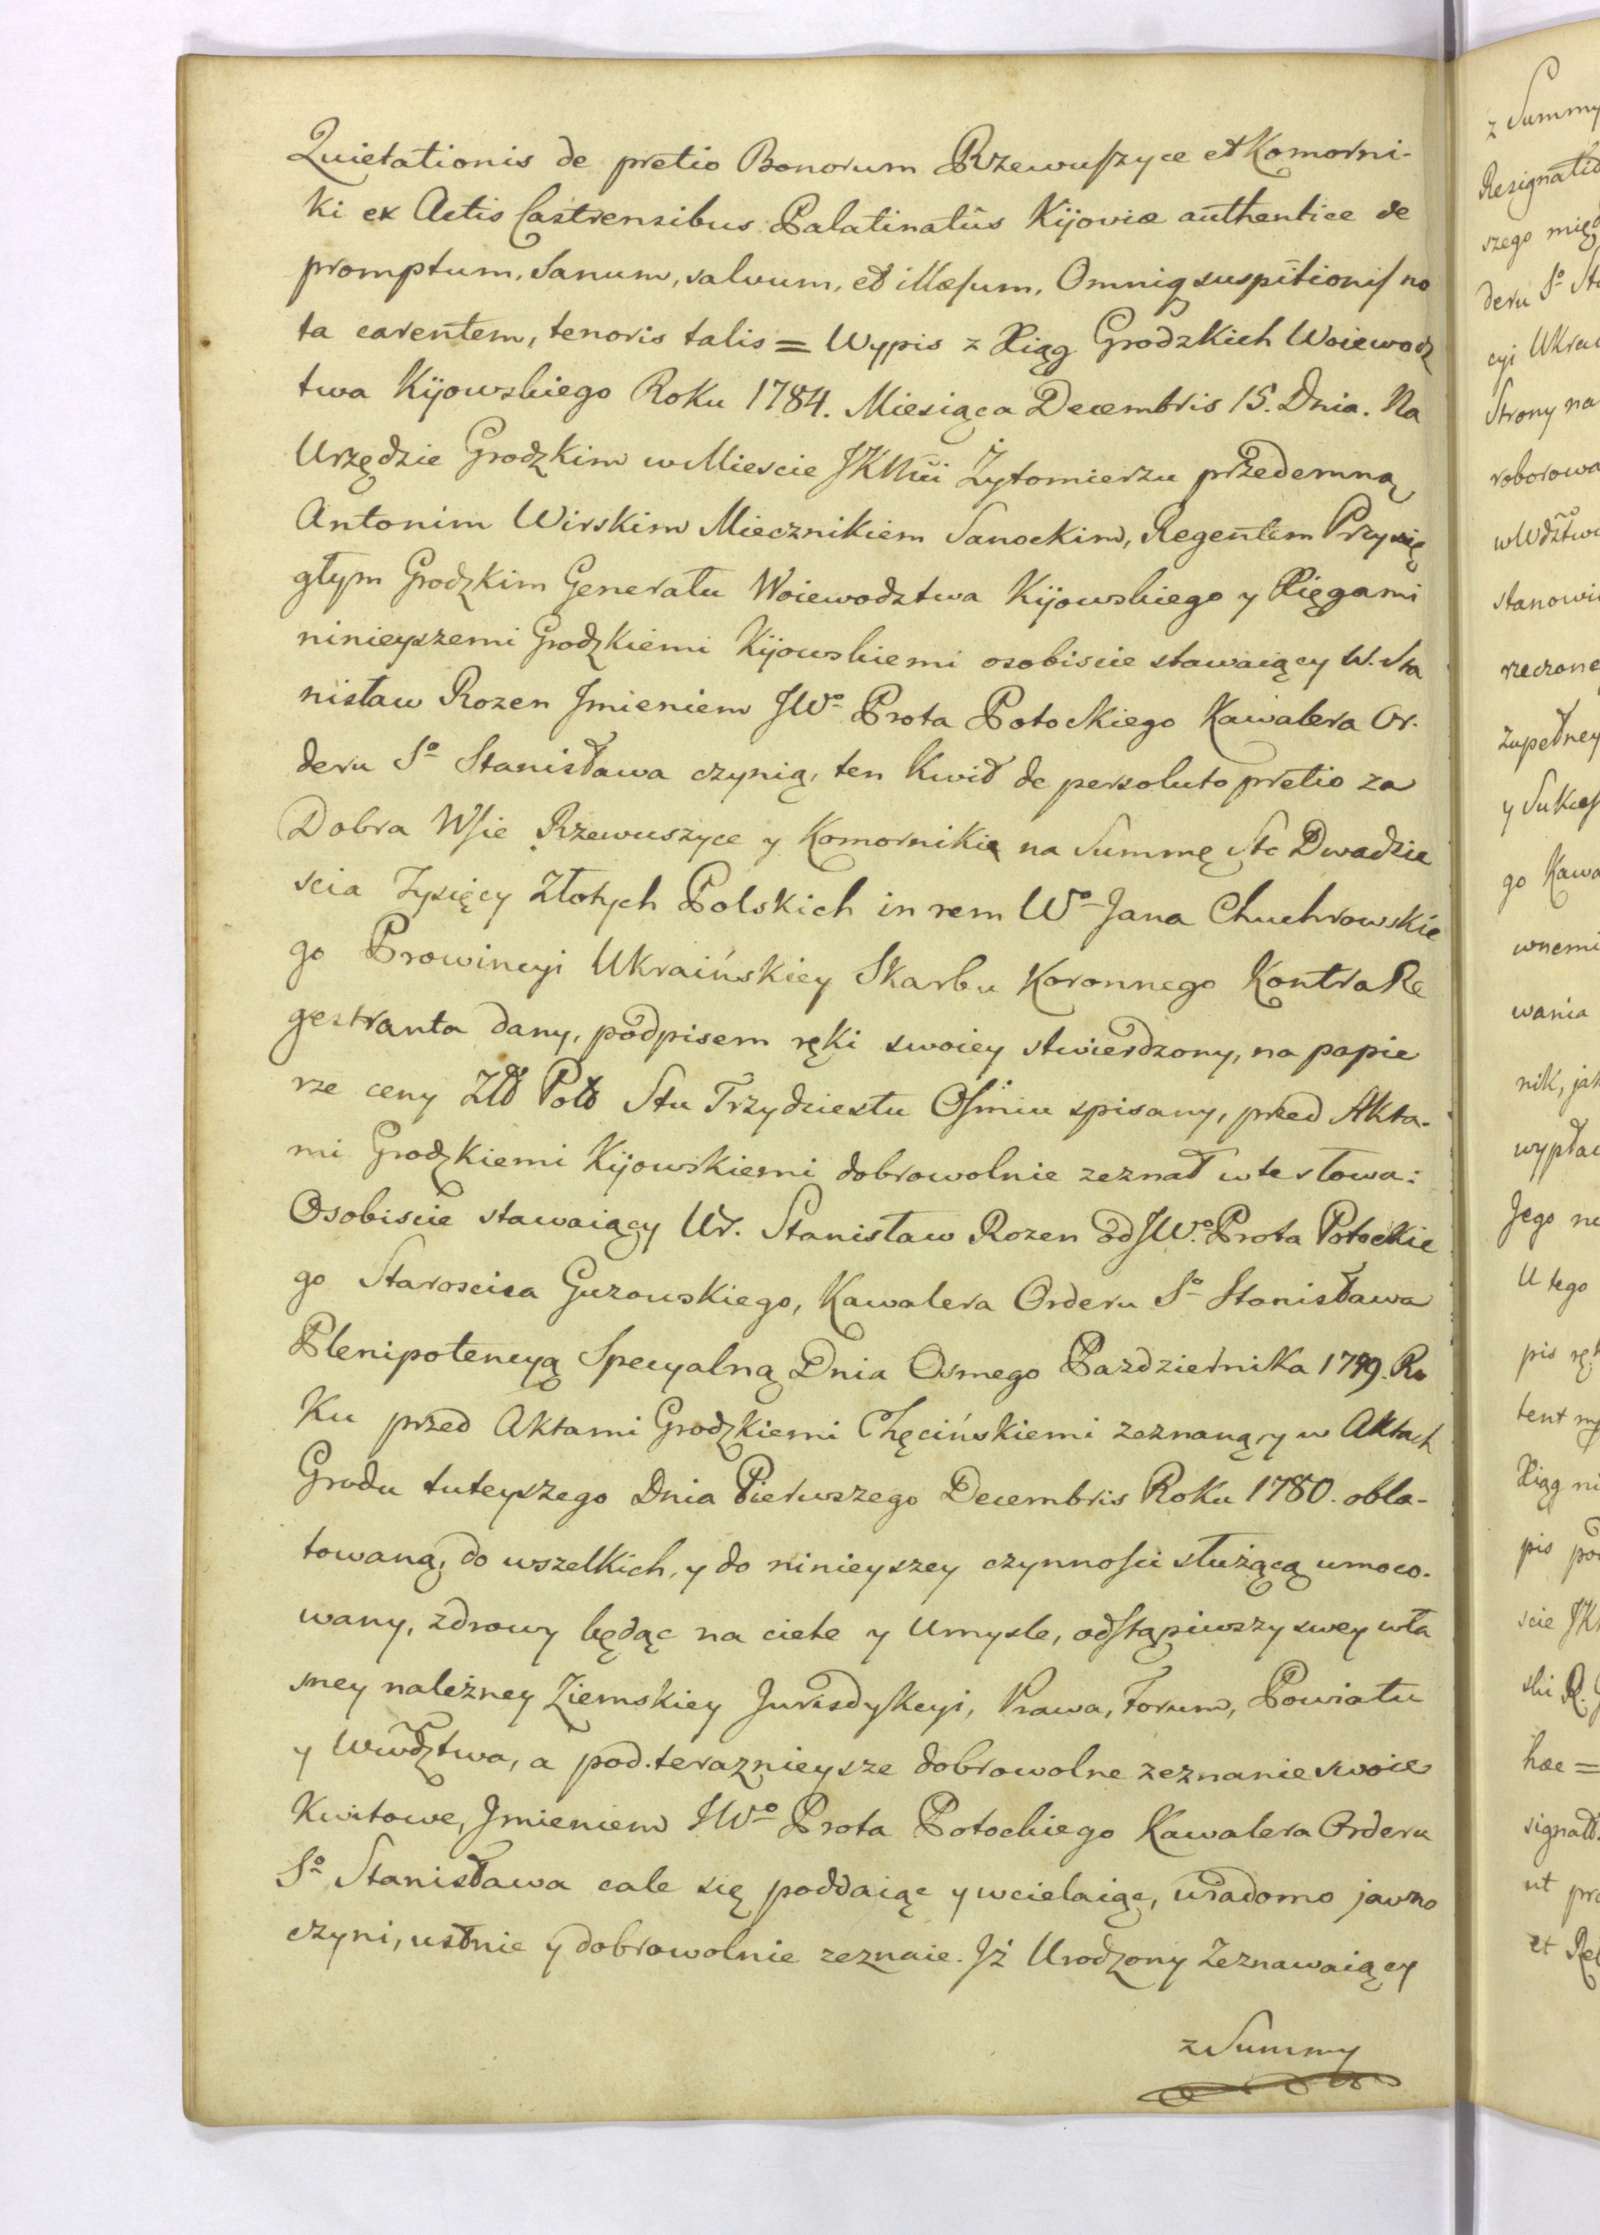 Quietationis de pretio Bonorum Rzewuszyce et Komorni-
ki ex Actis Castrensibus Palatinatûs Kijoviæ authentice de
promptum, sanum, salvum, et illæsum, Omniq suspitionis no
ta carentem, tenoris talis = Wypis z Xiąg Grodzkich Woiewodz
twa Kijowskiego Roku 1784. Miesiąca Decembris 15. Dnia. Na
Urzędzie Grodzkim w Miescie JKMci Żytomierzu przedemną
Antonim Wirskim Miecznikiem Sanockim, Regentem Przysię
głym Grodzkim Generału Woiewodztwa Kijowskiego y Xięgami
ninieyszemi Grodzkiemi Kijowskiemi osobiscie stawaiący W. Sta
nisław Rozen Jmieniem JWº Prota Potockiego Kawalera Or-
deru Sº Stanisława czynią, ten Kwit de persoluto pretio za
Dobra Wsie Rzewuszyce y Komornikie na Summę Sto Dwadzie
scia Tysięcy Złotych Polskich in rem Wº Jana Chuchrowskie
go Prowincyi Ukraińskiey Skarbu Koronnego KontraRe
gestranta dany, podpisem ręki swoiey stwierdzony, na papie
rze ceny Złł Poll Stu Trzydziestu Osmiu spisany, przed Akta-
mi Grodzkiemi Kijowskiemi dobrowolnie zeznał w te słowa:
Osobiscie stawaiący Ur. Stanisław Rozen od JW.º Prota Potockie
go Starościca Guzowskiego, Kawalera Orderu Sº Stanisława
Plenipotencyą Specyalną Dnia Osmego Pazdziernika 1779. Ro
Ku przed Aktami Grodzkiemi Chęcińskiemi zeznaną, y w Aktach
Grodu tuteyszego Dnia Pierwszego Decembris Roku 1780. obla-
towaną, do wszelkich, y do ninieyszey czynnosci służącą umoco-
wany, zdrowy będąc na ciele y Umysle, odstąpiwszy swey wła
sney należney Ziemskiey Jurisdykcyi, Prawa, Forum, Powiatu
y Wwdztwa, a pod terazniejsze dobrowolne zeznanie swoie
Kwitowe, Jmieniem JWº Prota Potockiego Kawalera Orderu
Sº Stanisława cale się poddaiąc y wcielaiąc, wiadomo jawno
czyni, ustnie y dobrowolnie zeznaie. Jż Urodzony Zeznawaiący
z Summy
z Summy
szego
deru Sº
Strony na
stanowi
rzeczone
zupełney
go Kawa
wnemi
wania
nik, jak
Jego
U tego
pis
hæ =
ut
et